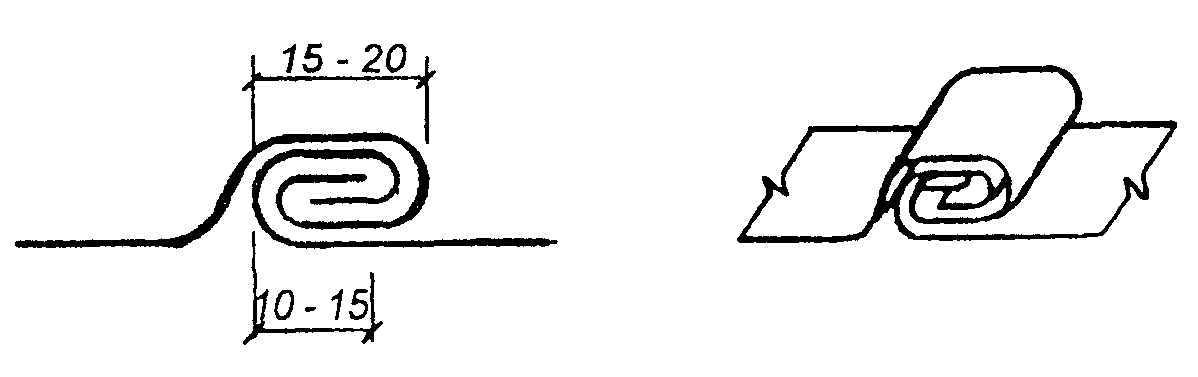 15 - 20
10 - 15